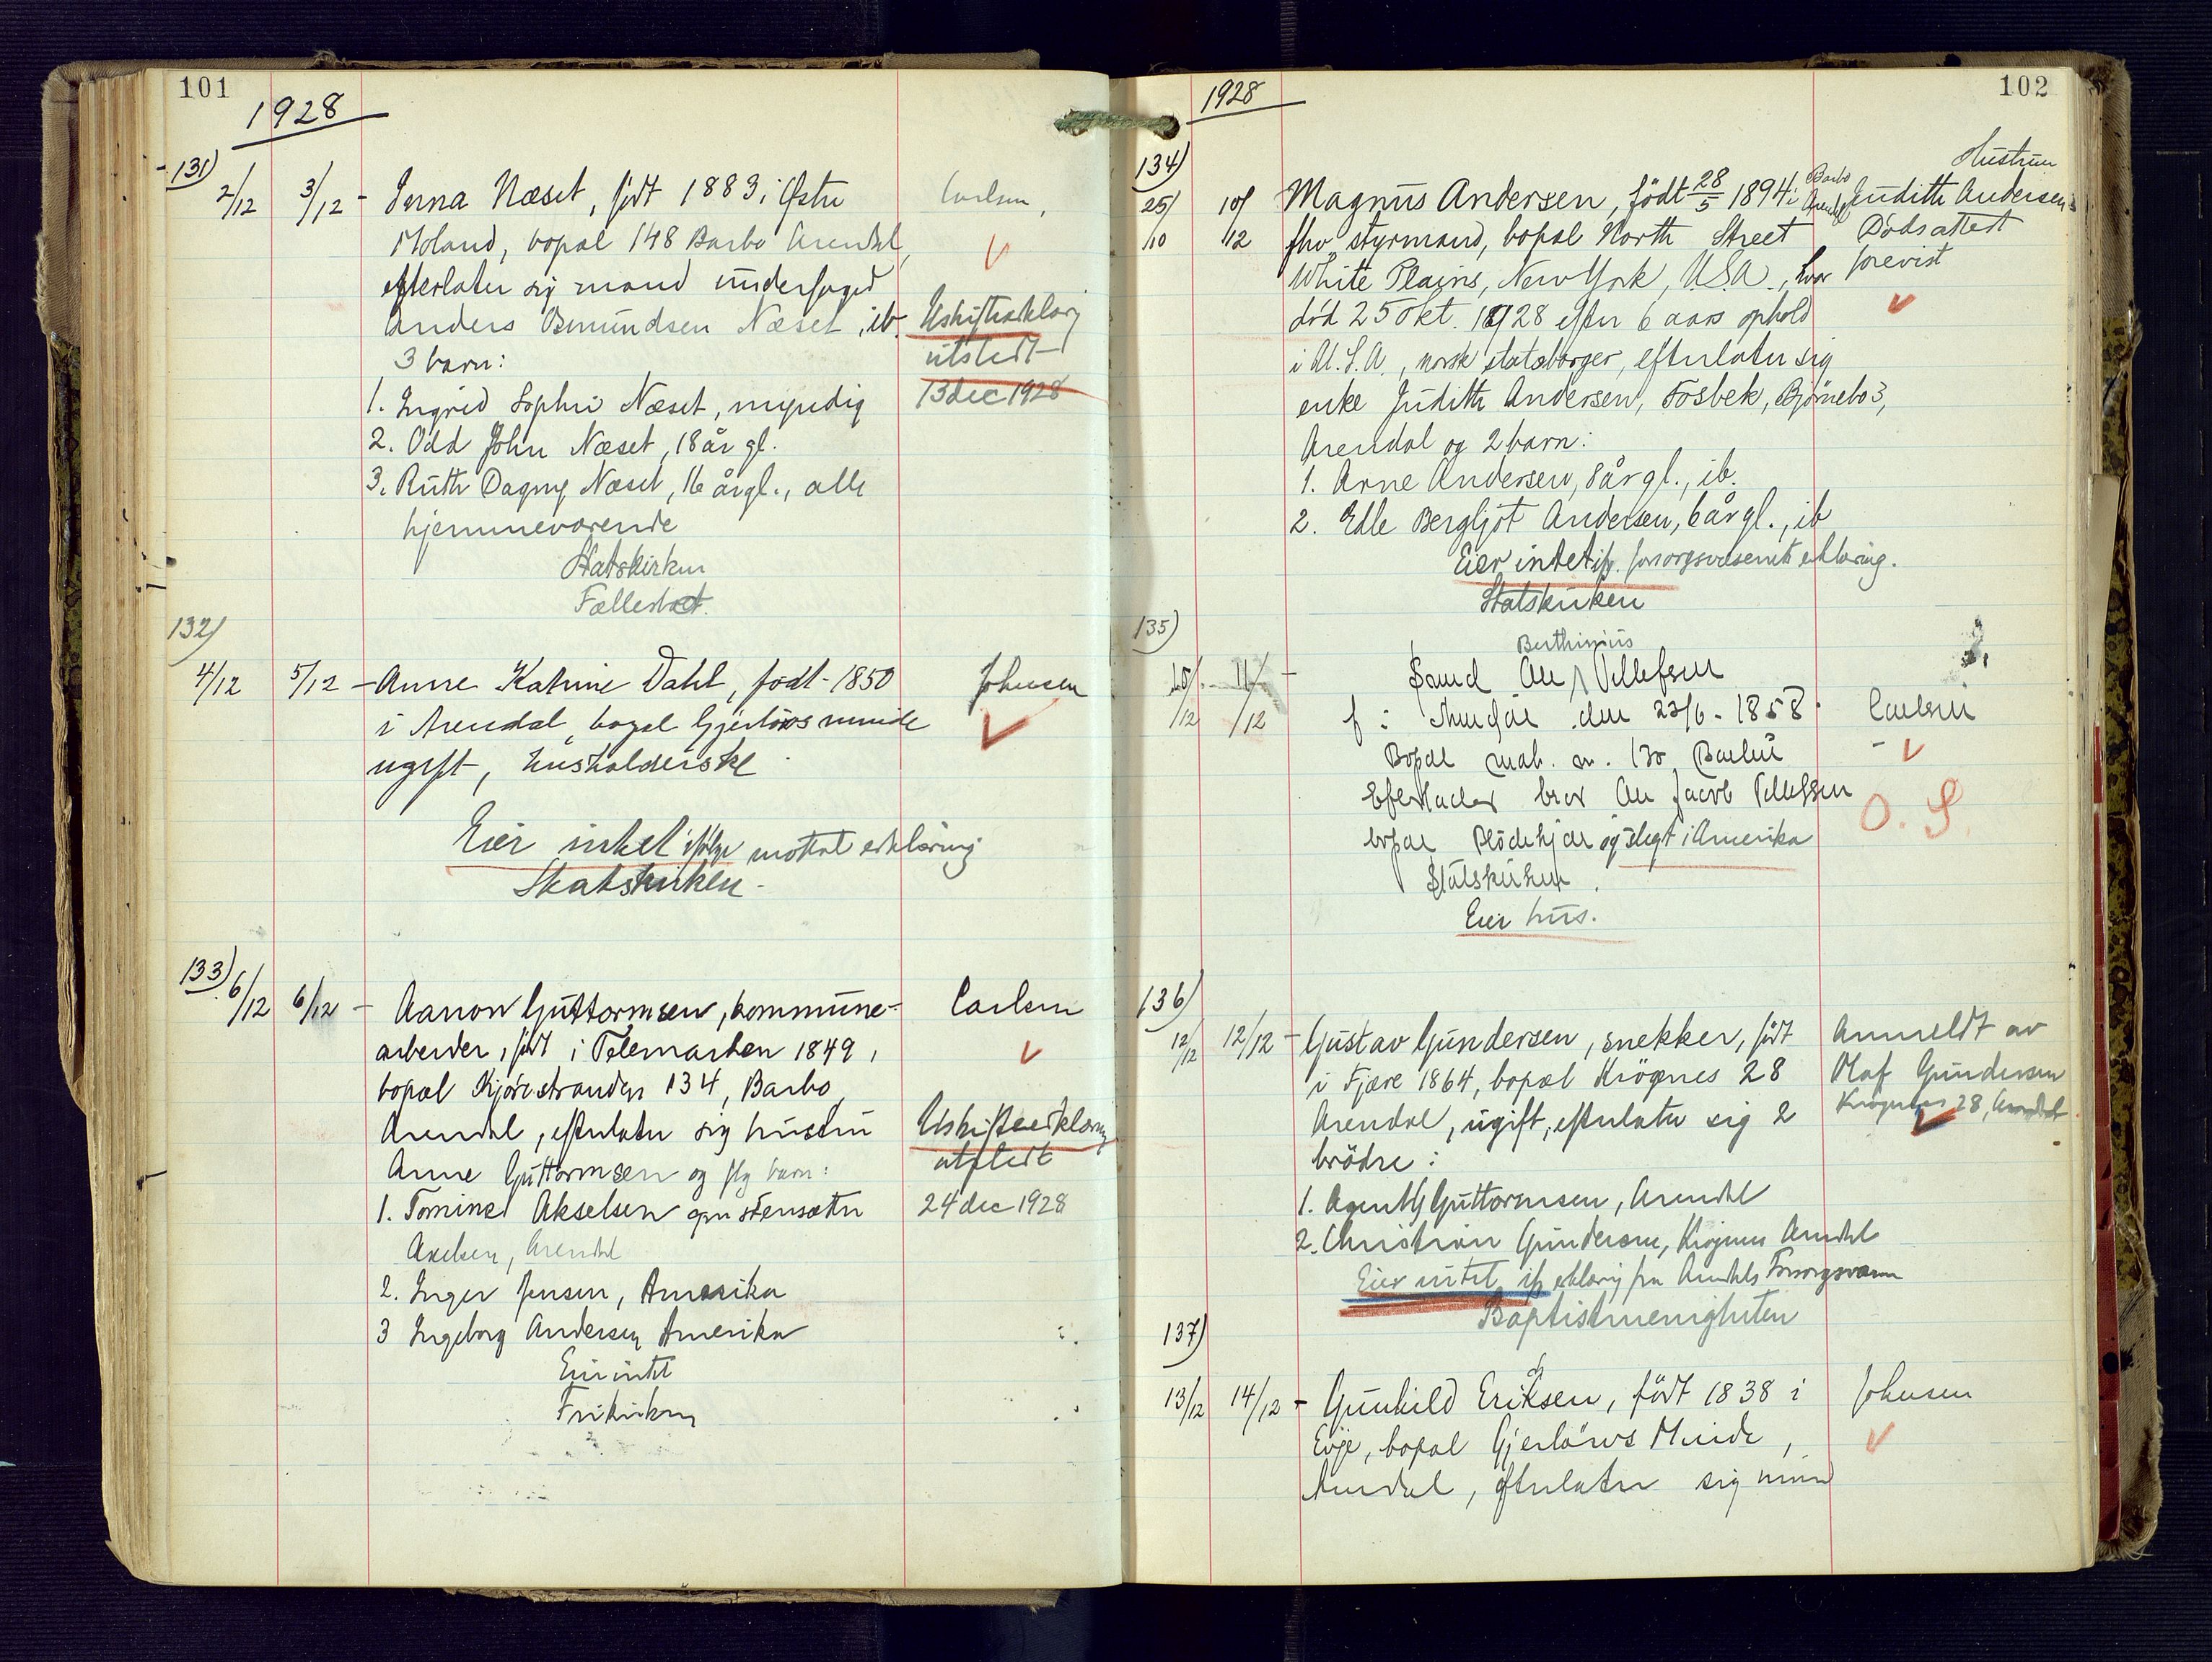 101
1928
131)
2/12 3/12 - Jerna Næset, født 1883 i Østre
Carlsen,
Moland, bopæl 148 Barbo Arendal,
efterlater sig mand
Anders Osmundsen Næset, ib.
3 barn:
Uskifteerklæring
utstedt
13 dec 1928
1. Ingrid Sophie Næset, myndig
2. Odd John Næset, 18 år gl.
3. Ruth Dagny Næset, 16 år gl., alle
hjemmeværende
Statskirken
132)
4/12 5/12 - Anne Katrine Dahl, født 1850
Johnsen
i Arendal, bopæl Gjerløws minde
ugift, husholderske
Eier intet ifølge mottat erklæring
Statskirken -
133)
6/12 6/12 - Aanon Guttormsen, kommune-
Carlsen
arbeider, født i Telemarken 1849,
bopæl Kjørestranden 134, Barbo,
Arendal, efterlater sig hustru
Anne Guttormsen og flg barn:
Uskifteerklæring
utstedt
24 dec 1928
1. Tomine Akselsen gm stensætter
Axelsen, Arendal
2. Inger Jensen, Amerika
3 Ingeborg Andersen Amerika
Eier intet
Frikirken
102
1928
134)
25/10 10/12 Magnus Andersen, født 28/5 1894 i Barbo Arendal
Hustruen
Judith Andersen
Dødsattest
forevist
fhv. styrmand, bopæl North Street
White Plains, New York, U.S.A., hvor
død 25 okt. 1928 efter 6 aars ophold
i U.S.A., norsk statsborger, efterlater sig
enke Judith Andersen, Fosbek, Bjørnebo 3,
Arendal og 2 barn:
1. Arne Andersen, 8 år gl., ib.
2. Edle Bergljot Andersen, 6 år gl., ib
Eier intet ifg. forsorgsvesenets erklæring.
Statskirken
135)
Berthinius
10/12 11/12 - Ole Tellefsen
f i Arendal den 23/6 - 1858.
Carlsen
Bopæl matr. nr. 130 Barbu
Efterlader bror Ole Jacob Tellefsen
O. S.
bopæl Blødekjær og slegt i Amerika
Statskirken
Eier hus.
136)
12/12 12/12 - Gustav Gundersen, snekker, født
Anmeldt av
Olaf Gundersen
Krøgenes 28, Arendal
i Fjære 1864, bopæl Krøgenes 28
Arendal, ugift, efterlater sig 2
brødre:
1. Agent G Guttormsen, Arendal
2. Christian Gundersen, Krøgenes Arendal
Eier intet ifg erklæring fra Arendals Forsorgsvesen
Baptistmenigheten
137)
13/12 14/12 - Gunhild Eriksen, født 1838 i
Johnsen
Evje, bopæl Gjerløws Minde,
Arendal, efterlater sig mand